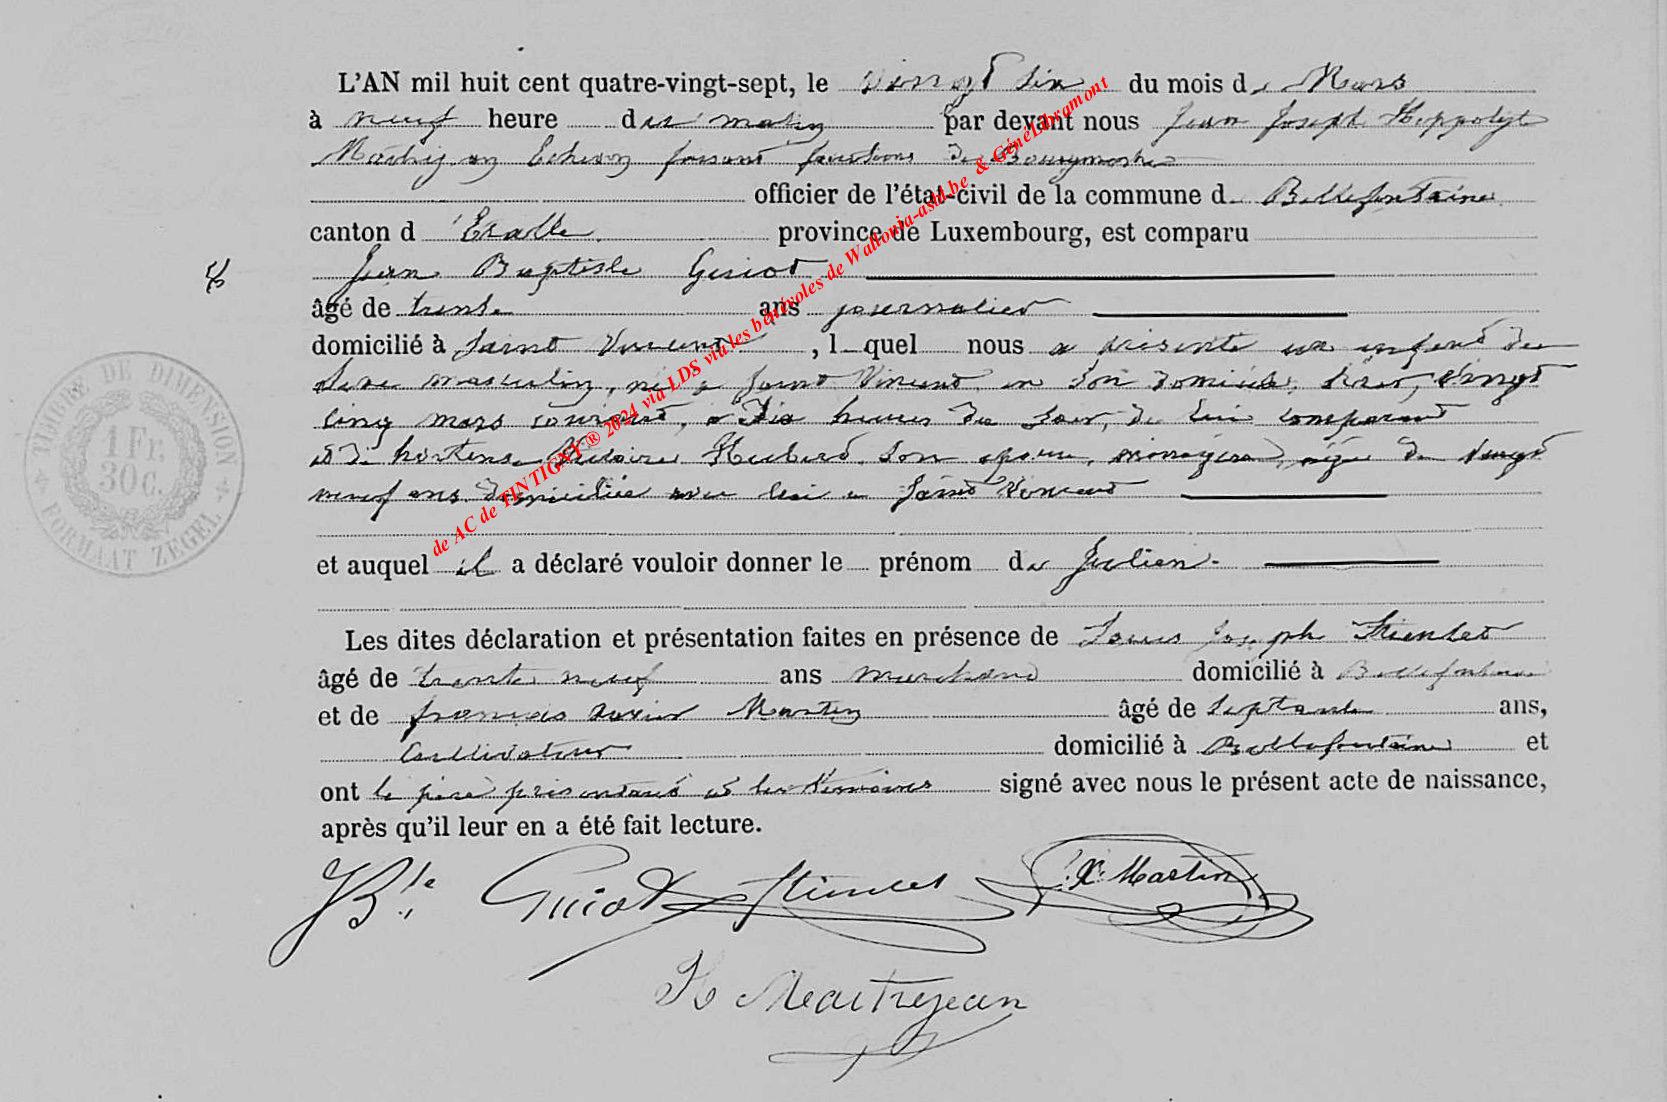 L'AN mil huit cent quatre-vingt-sept, le vingt six du mois de Mars
à neuf heure des matin par devant nous Jean Joseph Hippolyte
Maitrejean Echevin faisant fonctions de Bourgmestre
officier de l'état-civil de la commune de Bellefontaine
canton d'Etalle province de Luxembourg, est comparu
Jean Baptiste Guiot
âgé de trente ans journalier
domicilié à Saint Vincent, lequel nous a présenté un enfant du
sexe masculin, né à Saint Vincent en son domicile, hier, vingt
cinq mars courant, à dix heures du soir, de lui comparant
et de hortense Hubert son épouse, ménagère, agée de vingt
neuf ans domiciliée avec lui a Saint Vincent
et auquel il a déclaré vouloir donner le prénom de Julien.
Les dites déclaration et présentation faites en présence de Louis Joseph
âgé de trente neuf ans marchand domicilié à Bellefontaine
et de francois xavier Martin âgé de septante ans,
cultivateur domicilié à Bellefontaine et
ont le père présentant et les témoins signé avec nous le présent acte de naissance,
après qu'il leur en a été fait lecture.
JBte Guiot X. Martin
H Maitrejean
TIMBRE DE DIMENSION
1 Fr.
30 C.
FORMAAT ZEGEL
de AC de TINTIGNY ® 2024 via LDS via les bénévoles de Wallonia-asbl.be & GénéLibramont